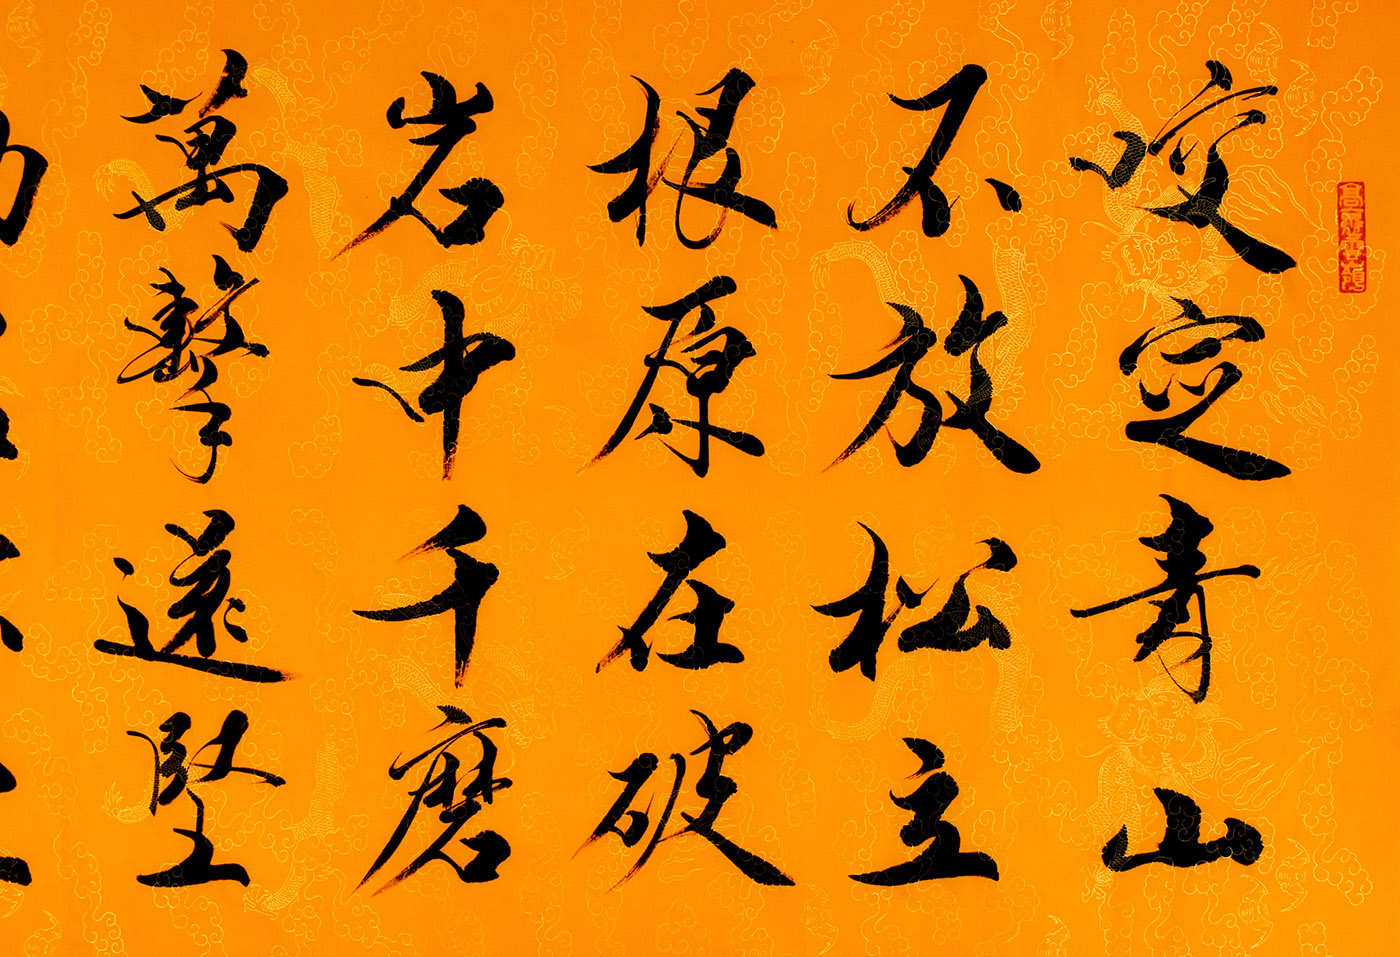 咬定青山
不放松立
根原在破
岩中千磨
萬擊還堅